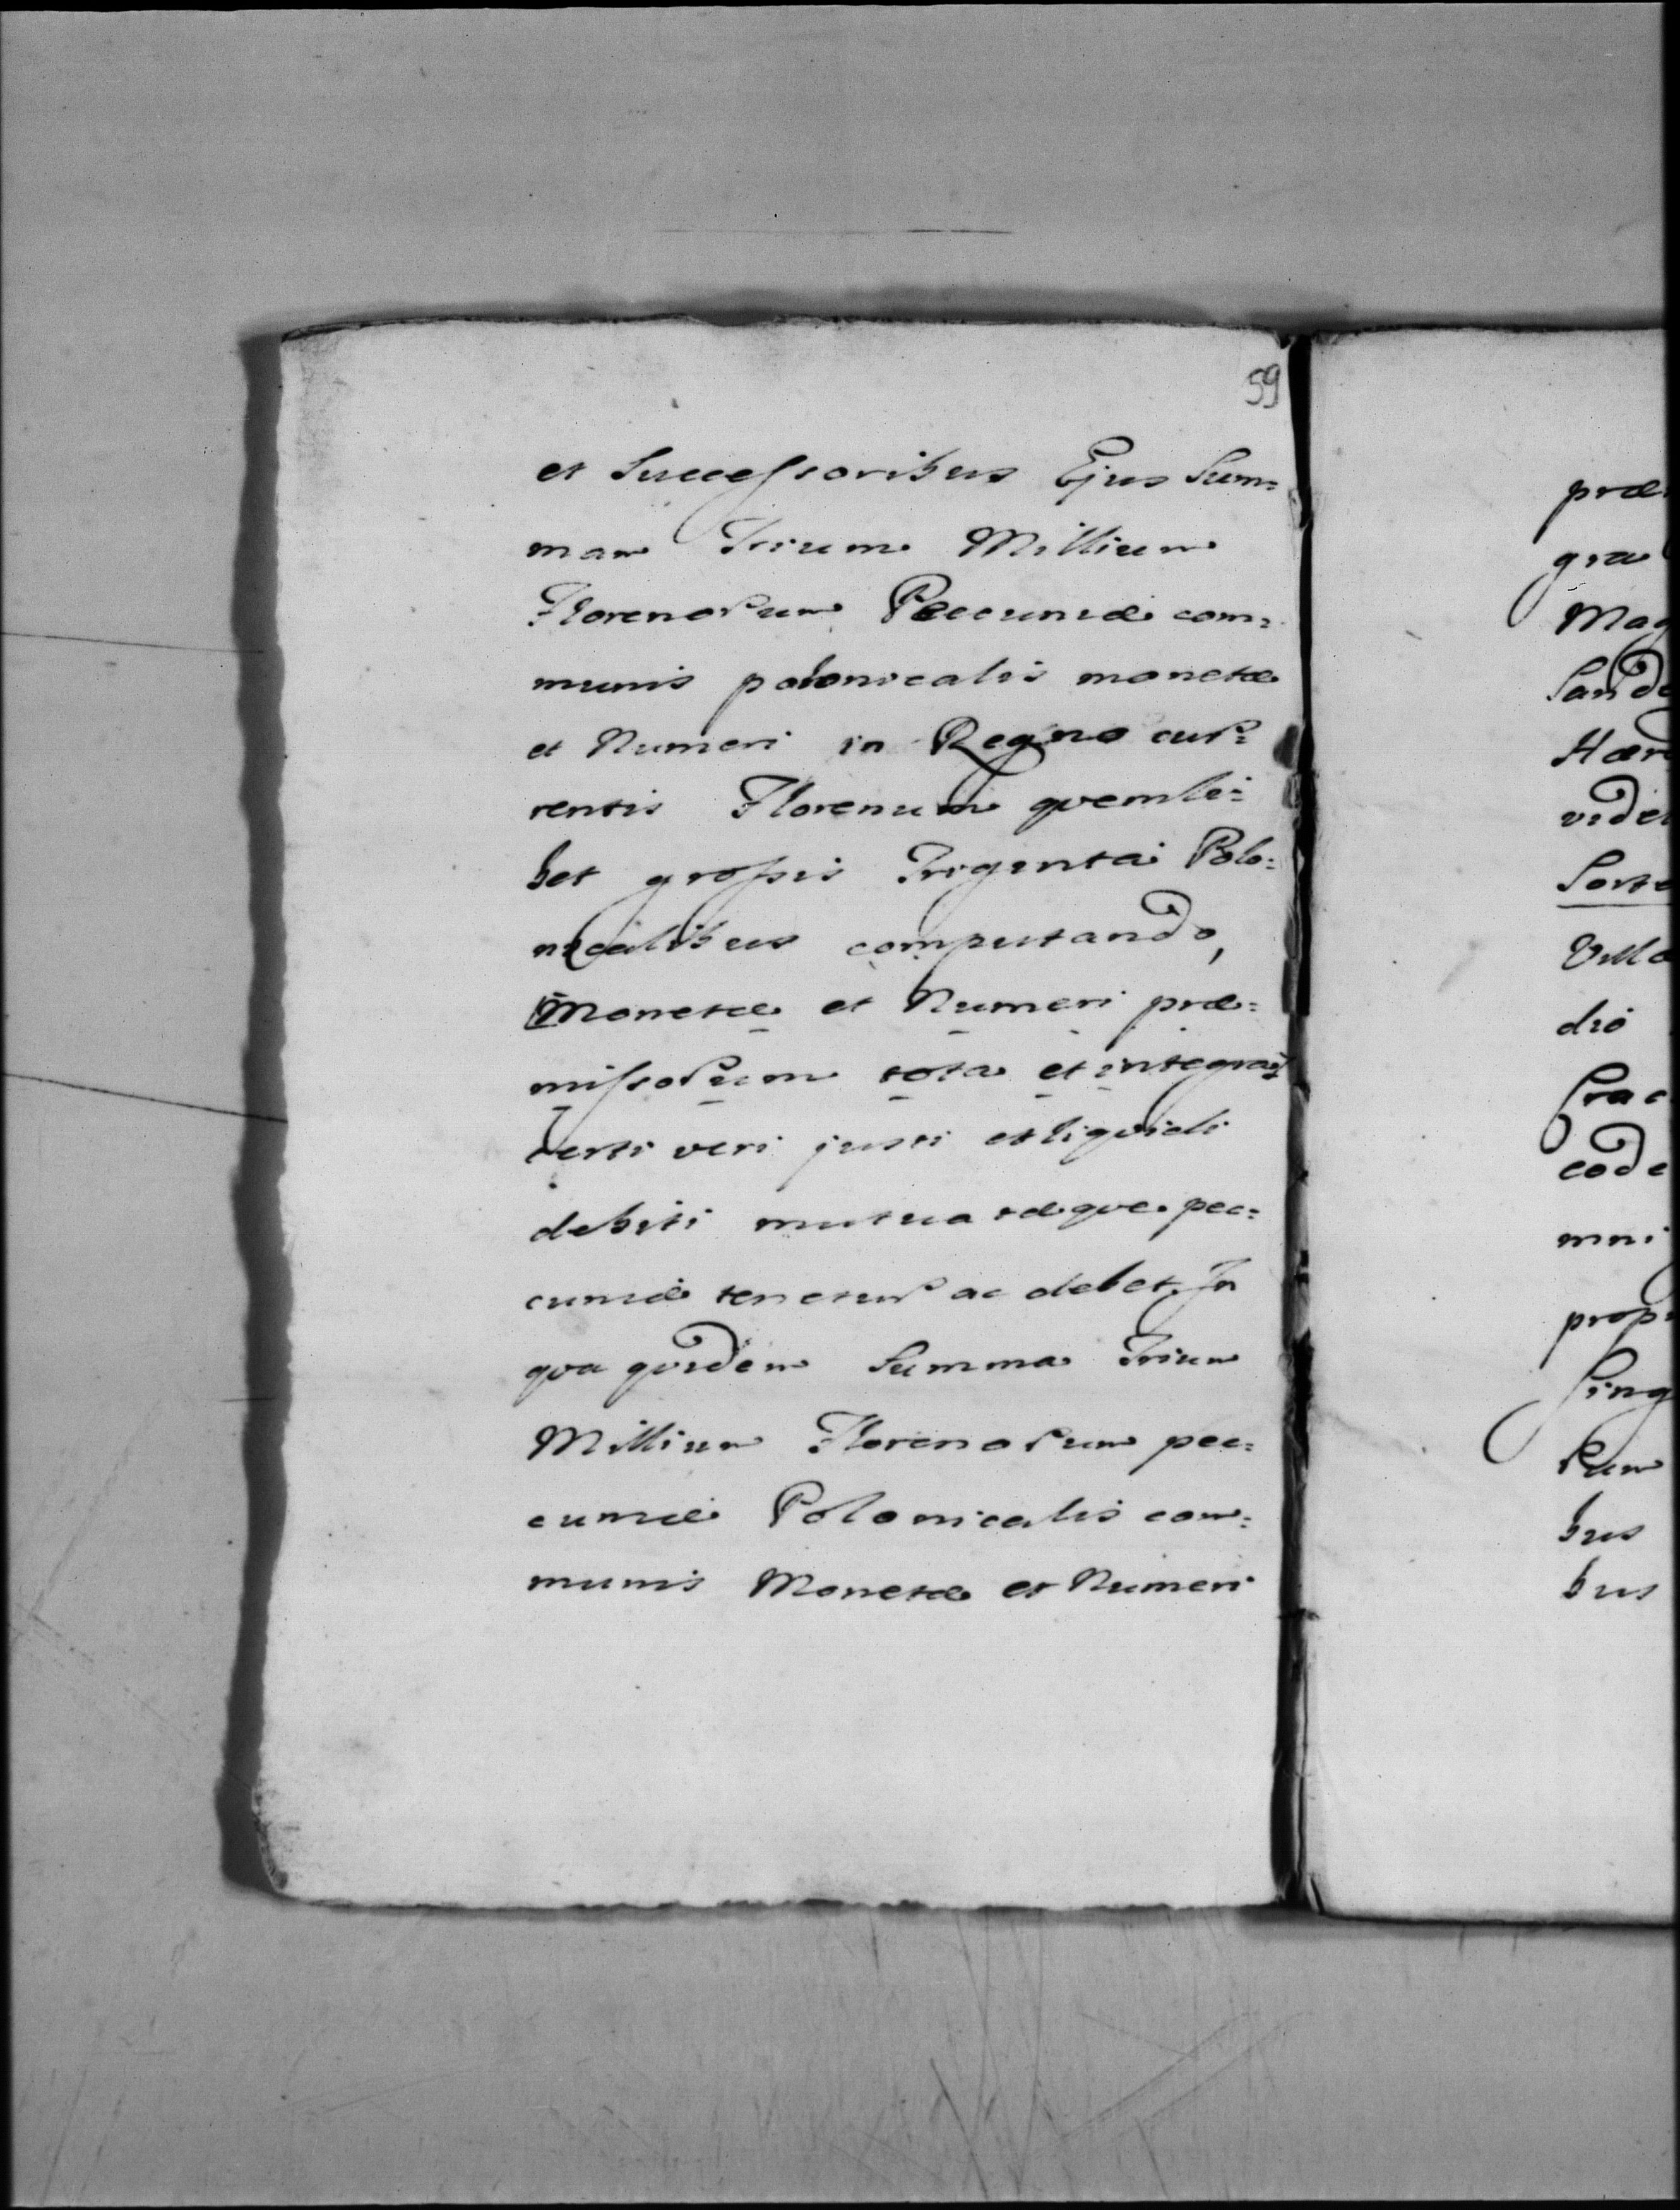 59
et Successoribus Ejus Sum=
mam Trium Millium
Florenorum Peccuniæ com=
munis polonicalis monetæ
et Numeri in Regno cur=
rentis Florenum quemli=
bet grossis Triginta Polo=
nicalibus computando,
Monetæ et Numeri præ=
missorum tota et integra
certi veri justi et liquidi
debiti mutuatæque pec=
cuniæ tenetur ac debet. In
qua quidem Summa Trium
Millium Florenorum pec=
cuniæ Polonicalis com=
munis Monetæ et Numeri
præ
gra
Mag
Sande
Hær
videl
Sorte
Villa
dio
Crac
code
mni
prop
Sing
Rum
bus
bus